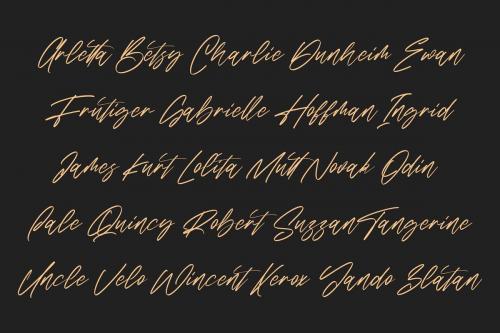 Arletta Betsy Charlie Dunheim Ewan
Frutiger Gabrielle Hoffman Ingrid
James Kurt Lolita Mutt Novak Odin
Pale Quincy Robert Suzzan Tangerine
Uncle Velo Wincent Xerox Yando Zlatan